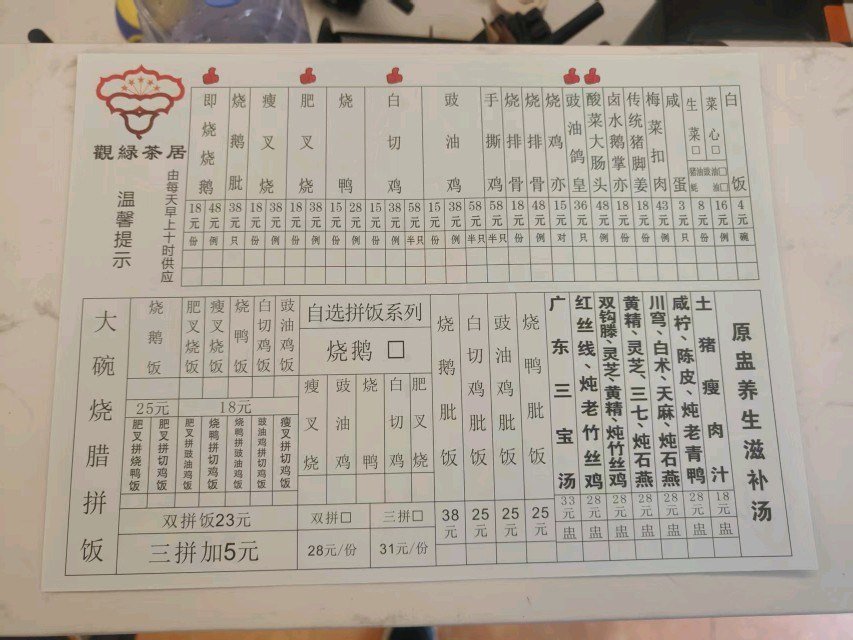 觀綠茶居
温馨提示
由每天早上十时供应
即烧烧鹅 烧鹅肶 瘦叉烧 肥叉烧 烧鸭 白切鸡 豉油鸡 手撕鸡 烧排骨 烧排骨 烧鸡亦 豉油鸽皇 酸菜大肠头 卤水鹅掌亦 传统猪脚姜 梅菜扣肉 咸蛋 生菜□ 菜心□ 白饭
猪油□ 豉油□ 蚝油□
18元 48元 38元 18元 38元 18元 38元 15元 28元 15元 38元 58元 15元 38元 58元 58元 18元 48元 15元 36元 48元 18元 18元 43元 3元 8元 16元 4元
份 例 只 份 例 份 例 份 例 份 例 半只 份 例 半只 半只 份 例 对 只 例 份 份 例 只 份 例 碗
大碗烧腊拼饭
烧鹅饭 肥叉烧饭 瘦叉烧饭 烧鸭饭 白切鸡饭 豉油鸡饭
25元 18元
肥叉拼烧鸭饭 肥叉拼切鸡饭 肥叉拼豉油鸡饭 烧鸭拼切鸡饭 烧鸭拼豉油鸡饭 豉油鸡拼切鸡饭 瘦叉拼切鸡饭
双拼饭23元
三拼加5元
自选拼饭系列
烧鹅 □
瘦叉烧 豉油鸡 烧鸭 白切鸡 肥叉烧
双拼□ 三拼□
28元/份 31元/份
烧鹅肶饭 白切鸡肶饭 豉油鸡肶饭 烧鸭肶饭
38元 25元 25元 25元
广东三宝汤
红丝线、炖老竹丝鸡
双钩滕、灵芝、黄精、炖竹丝鸡
黄精、灵芝、三七、炖石燕
川穹、白术、天麻、炖石燕
咸柠、陈皮、炖老青鸭
土猪瘦肉汁
33元 28元 28元 28元 28元 28元 18元
盅 盅 盅 盅 盅 盅 盅
原盅养生滋补汤